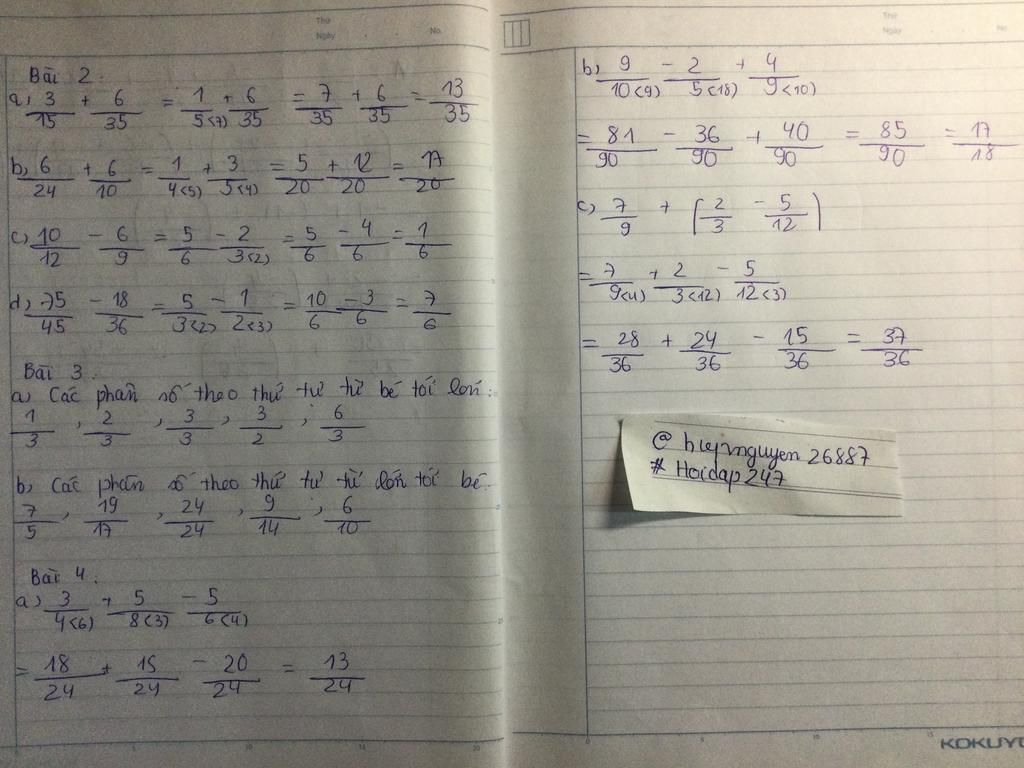 Thứ
Ngày
No.
Bài 2:
a, 3/15 + 6/35 = 1/5(7) + 6/35 = 7/35 + 6/35 = 13/35
b, 6/24 + 6/10 = 1/4(5) + 3/5(4) = 5/20 + 12/20 = 17/20
c, 10/12 - 6/9 = 5/6 - 2/3(2) = 5/6 - 4/6 = 1/6
d, 75/45 - 18/36 = 5/3(2) - 1/2(3) = 10/6 - 3/6 = 7/6
Bài 3.
a, Các phân số theo thứ tự từ bé tới lớn:
1/3, 2/3, 3/3, 3/2; 6/3
b, Các phân số theo thứ tự từ lớn tới bé.
7/5, 19/17, 24/24, 9/14; 6/10
Bài 4.
a, 3/4(6) + 5/8(3) - 5/6(4)
= 18/24 + 15/24 - 20/24 = 13/24
Thứ
Ngày
No.
b, 9/10(9) - 2/5(18) + 4/9(10)
= 81/90 - 36/90 + 40/90 = 85/90 = 17/18
c, 7/9 + (2/3 - 5/12)
= 7/9(4) + 2/3(12) - 5/12(3)
= 28/36 + 24/36 - 15/36 = 37/36
# Hoidap247
KOKUYO